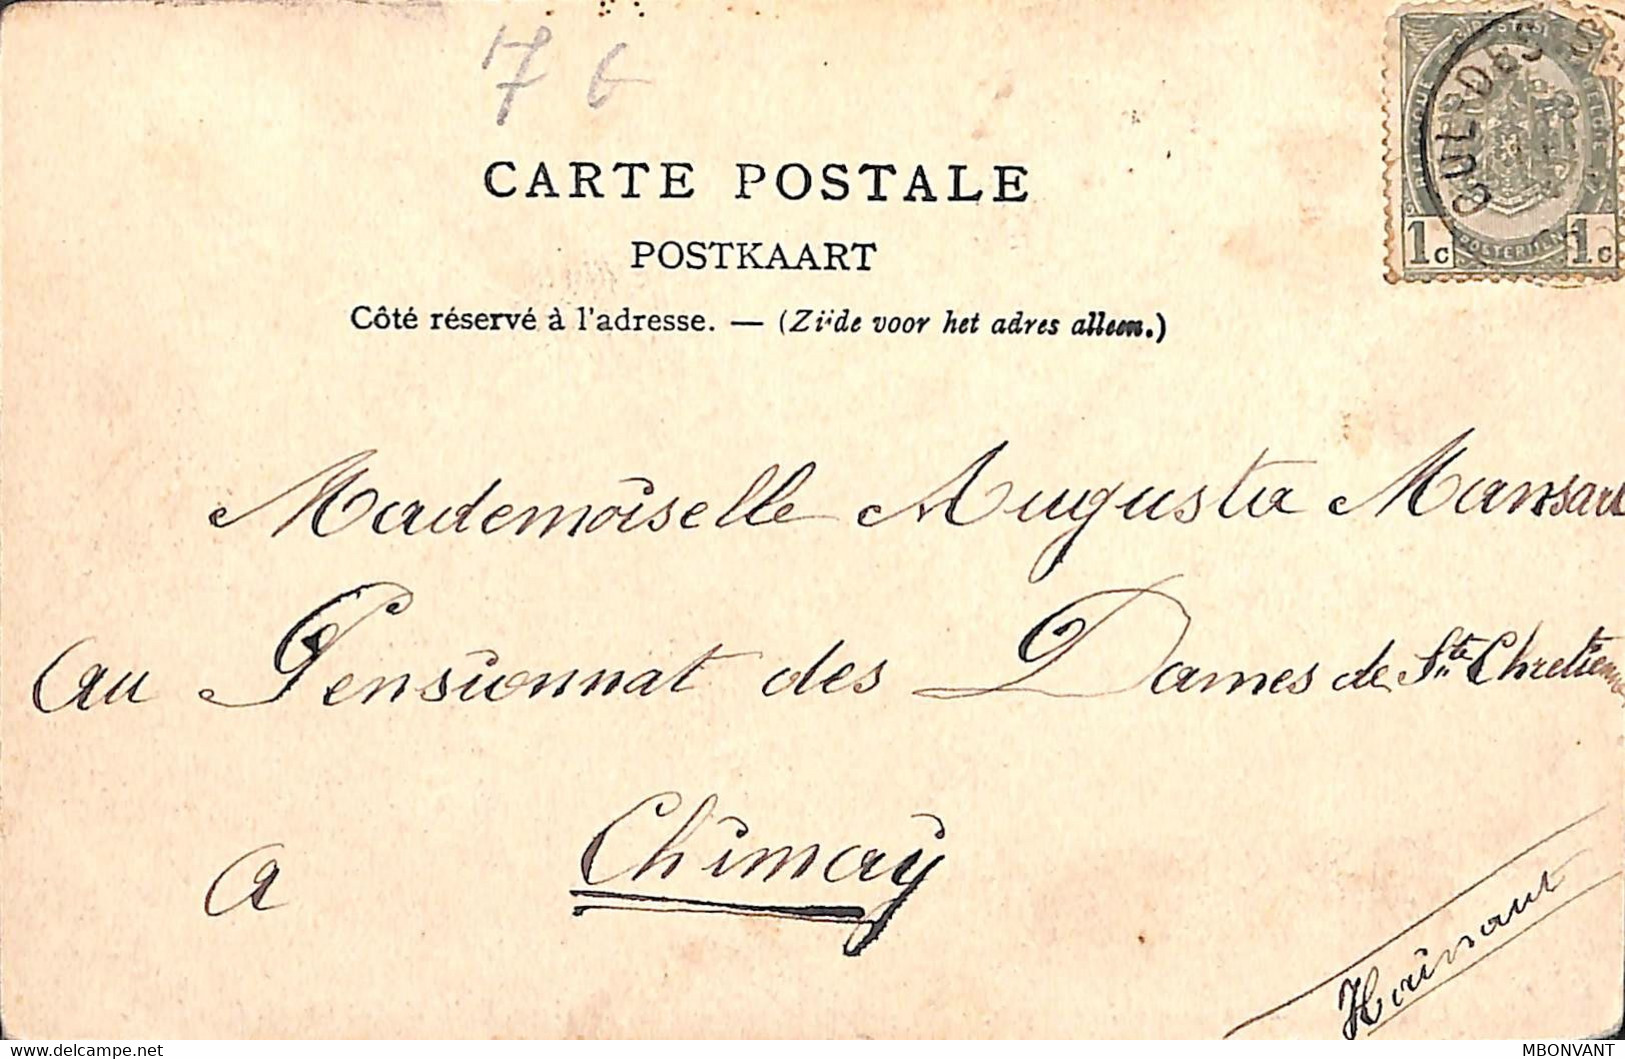 7 6
CARTE POSTALE
POSTKAART
Côté réservé à l'adresse. — (Zijde voor het adres alleen.)
1c POSTERIJEN 1c
Mademoiselle Augusta Mansart
au Pensionnat des Dames de Ste Chretienne
a Chimay
Hainaut
MBONVANT